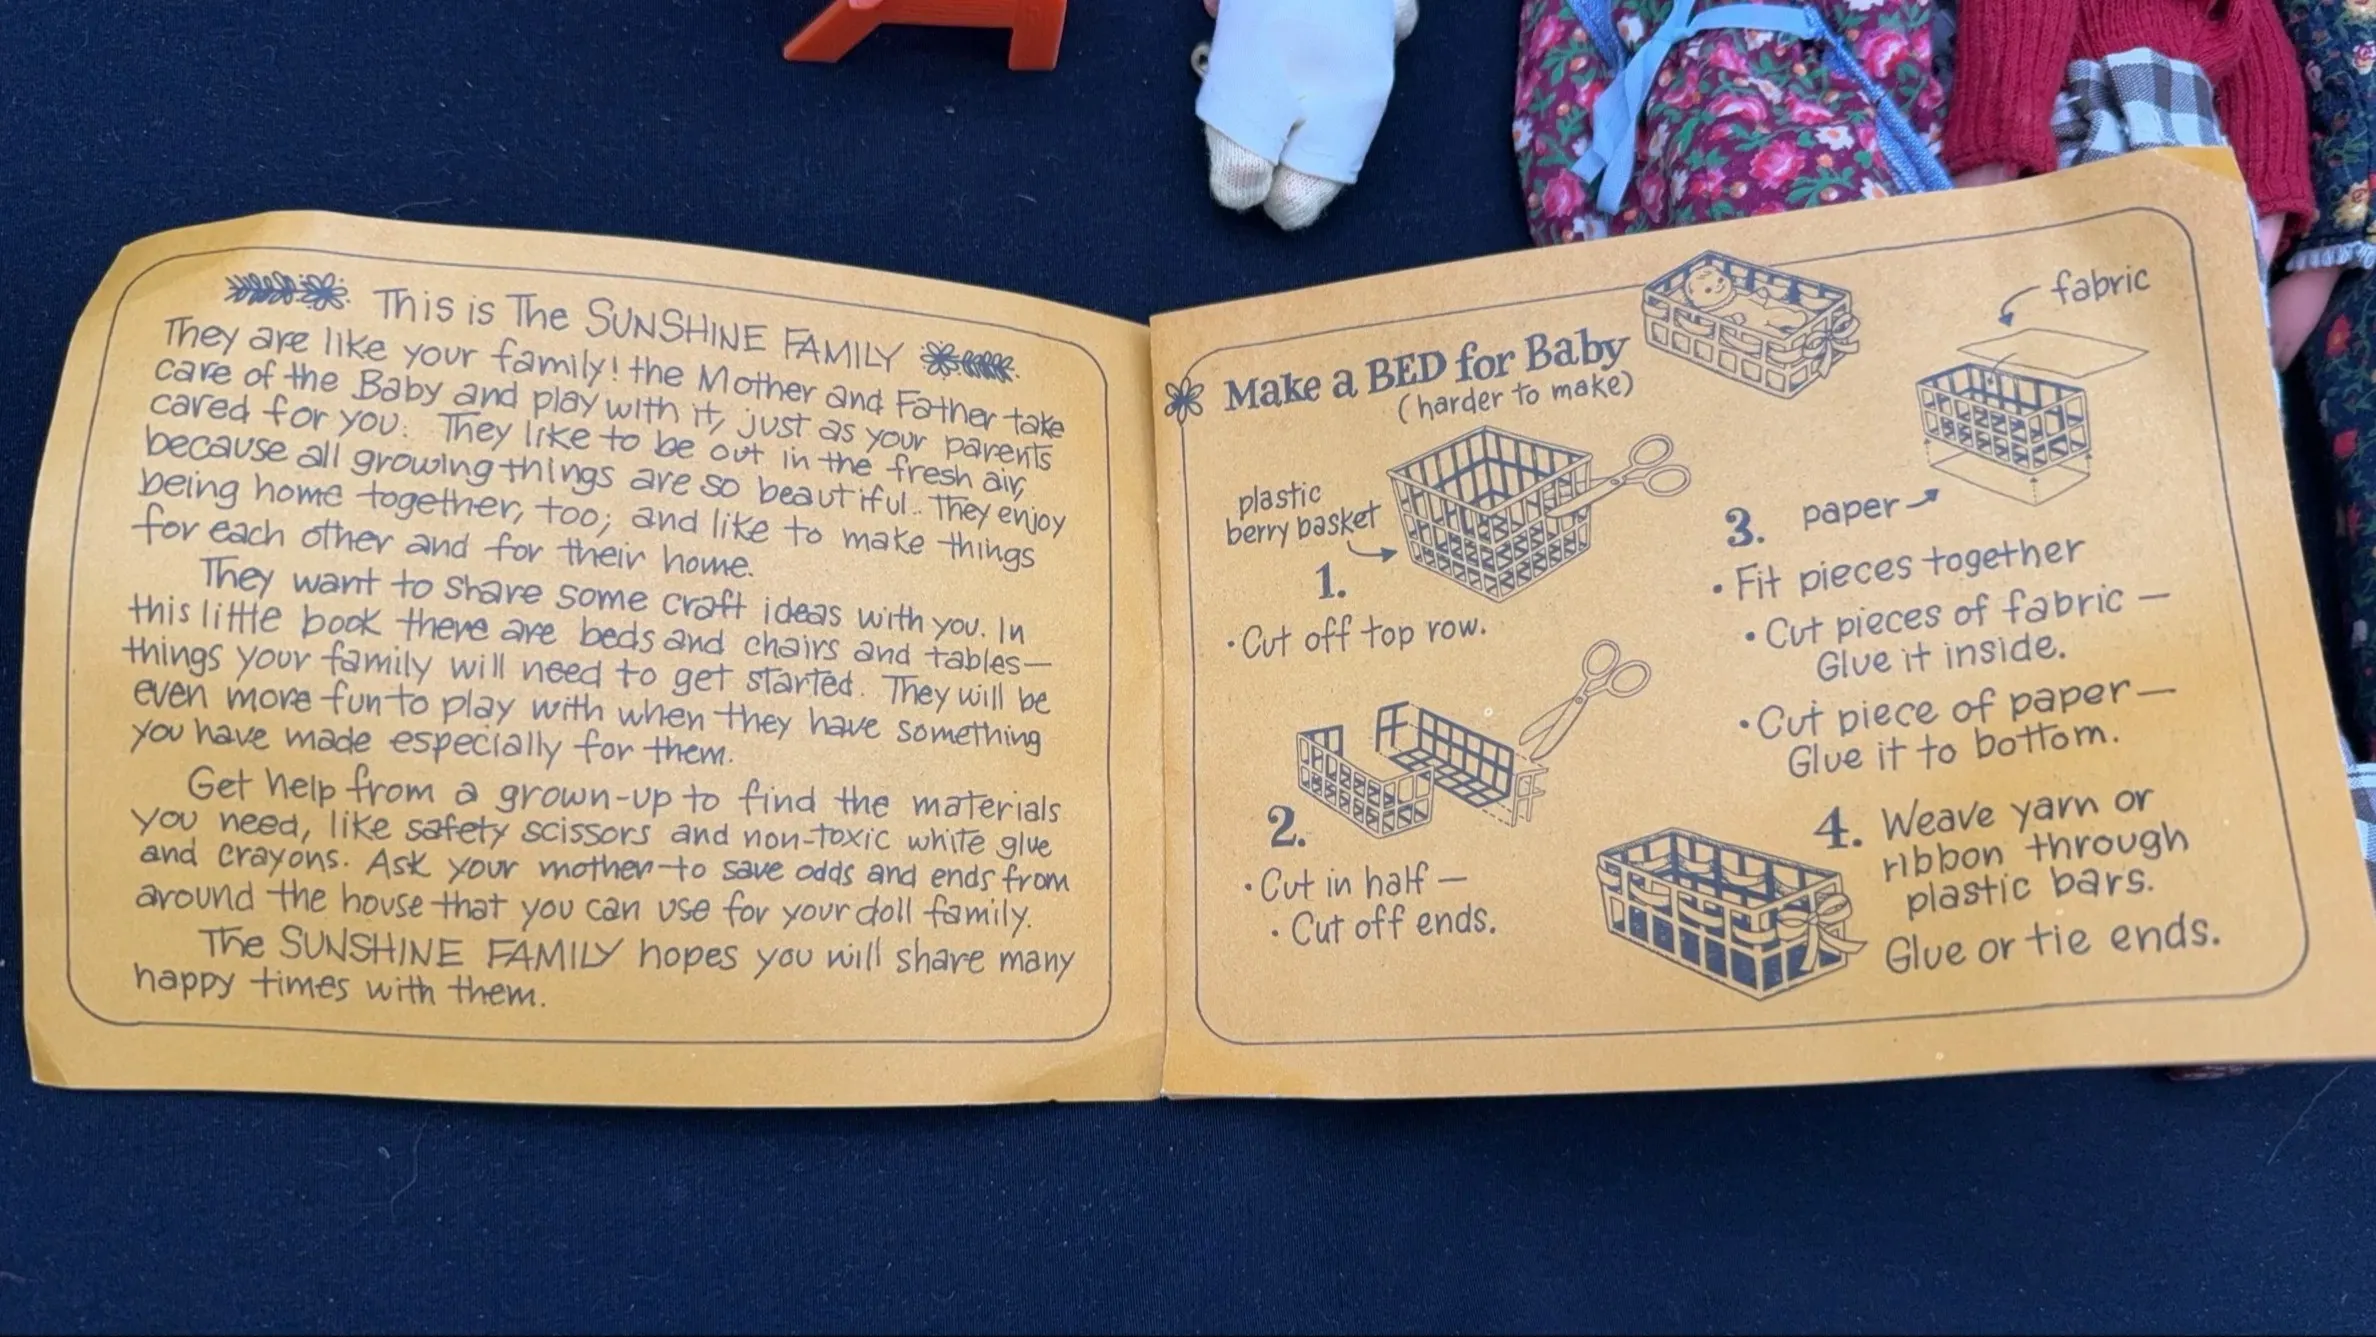 This is The SUNSHINE FAMILY
They are like your family! the Mother and Father take
care of the Baby and play with it, just as your parents
cared for you. They like to be out in the fresh air,
because all growing things are so beautiful. They enjoy
being home together, too; and like to make things
for each other and for their home.
They want to share some craft ideas with you. In
this little book there are beds and chairs and tables—
things your family will need to get started. They will be
even more fun to play with when they have something
you have made especially for them.
Get help from a grown-up to find the materials
you need, like safety scissors and non-toxic white glue
and crayons. Ask your mother to save odds and ends from
around the house that you can use for your doll family.
The SUNSHINE FAMILY hopes you will share many
happy times with them.
Make a BED for Baby
(harder to make)
plastic
berry basket
1.
• Cut off top row.
2.
• Cut in half —
• Cut off ends.
fabric
3. paper
• Fit pieces together
• Cut pieces of fabric —
Glue it inside.
• Cut piece of paper —
Glue it to bottom.
4. Weave yarn or
ribbon through
plastic bars.
Glue or tie ends.